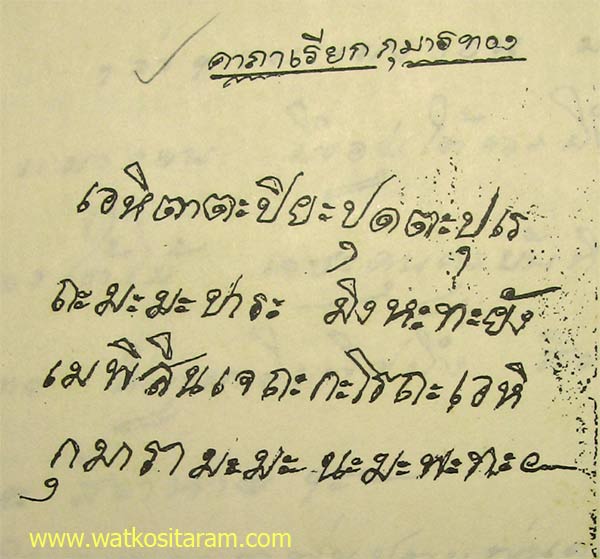 คาถาเรียกกุมารทอง
เอหิตาตะปิยะปุตตะปุเร
ถะมะมะปาระ มิงหะทะยัง
เมพิสินเจถะกะโรถะเอหิ
กุมารา มะมะ นะมะพะทะ
www.watkositaram.com